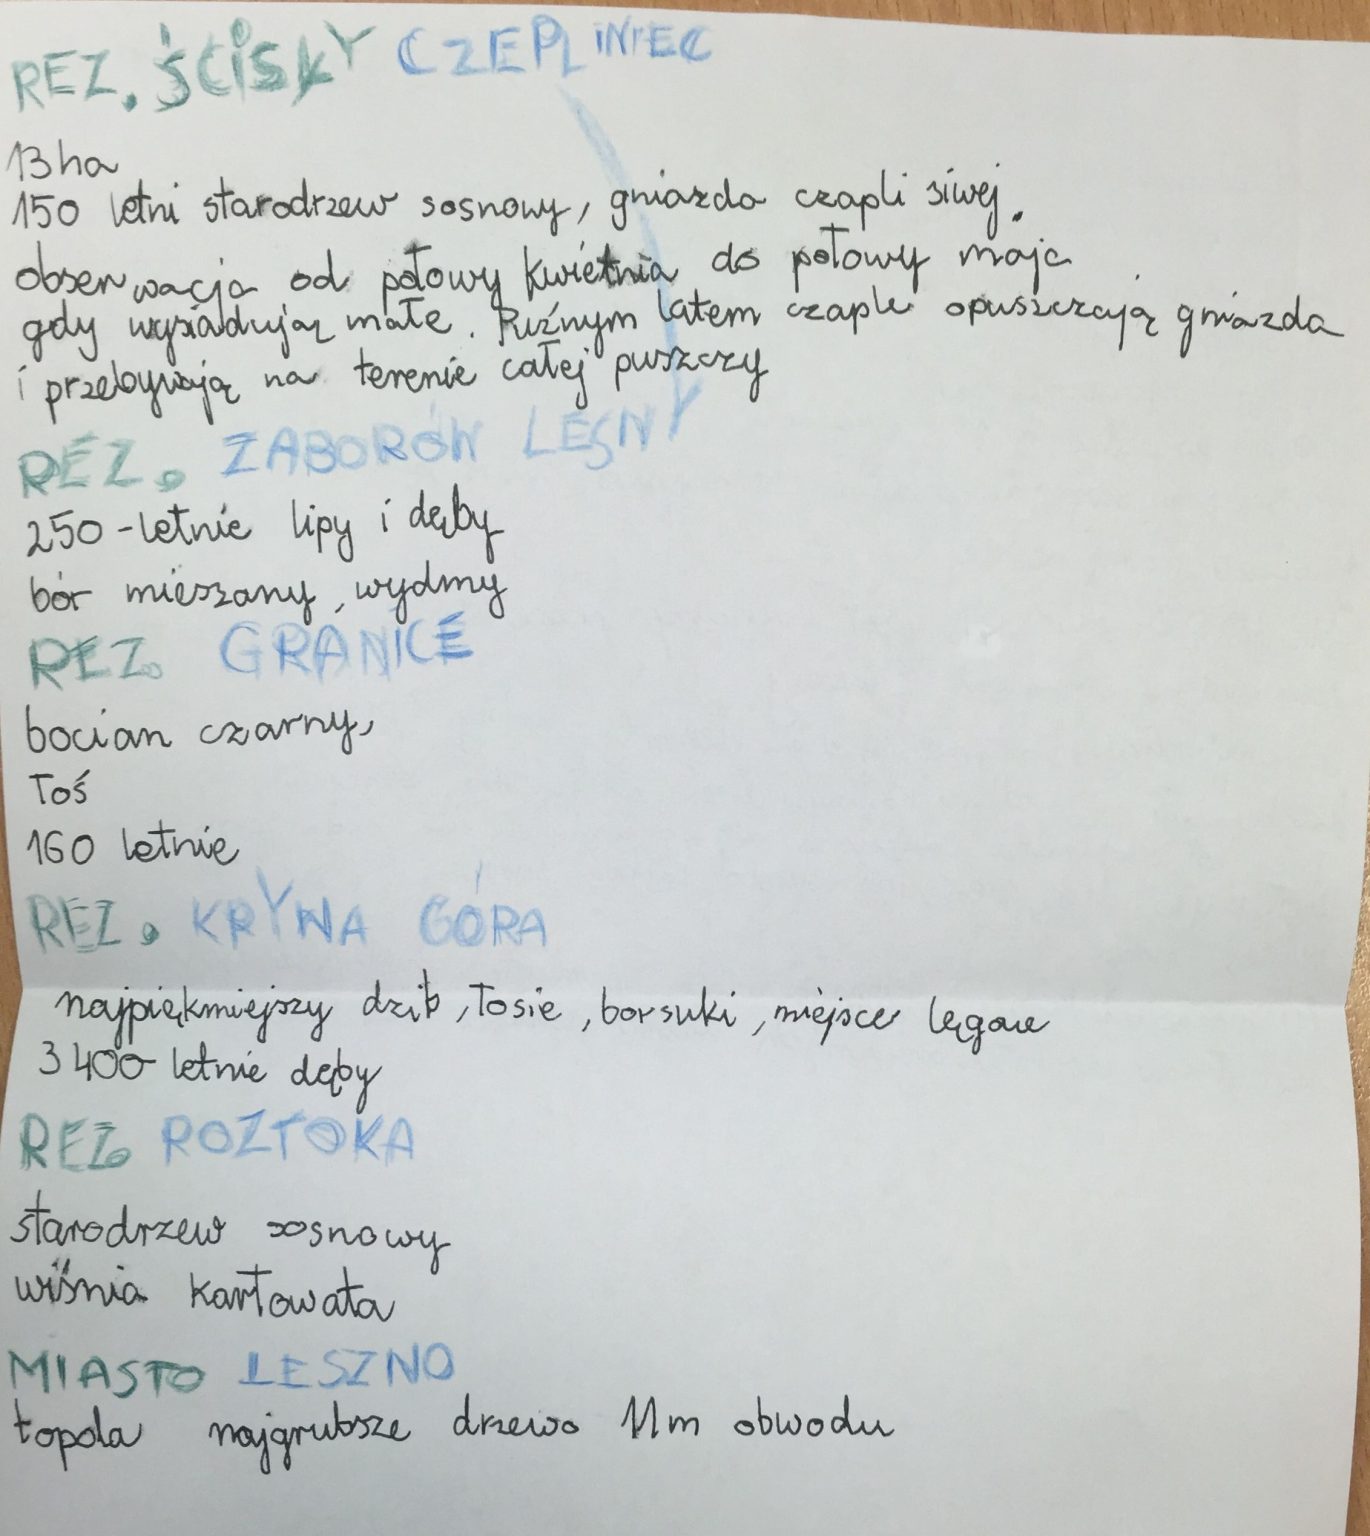 REZ. ŚCISŁY CZEPLINIEC
13 ha
150 letni starodrzew sosnowy, gniazda czapli siwej.
obserwacja od połowy kwietnia do połowy maja
gdy wysiadują małe. Puźnym latem czaple opuszczają gniazda
i przebywają na terenie całej puszczy
REZ. ZABORÓW LEŚNY
250-letnie lipy i dęby
bór mieszany, wydmy
REZ. GRANICE
bocian czarny,
łoś
160 letnie
REZ. KRYWA GÓRA
najpiękmiejszy dzib, łosie, borsuki, miejsce lęgowe
3 400 letnie dęby
REZ. ROZTOKA
starodrzew sosnowy
wiśnia karłowata
MIASTO LESZNO
topola najgrubsze drzewo 11m obwodu